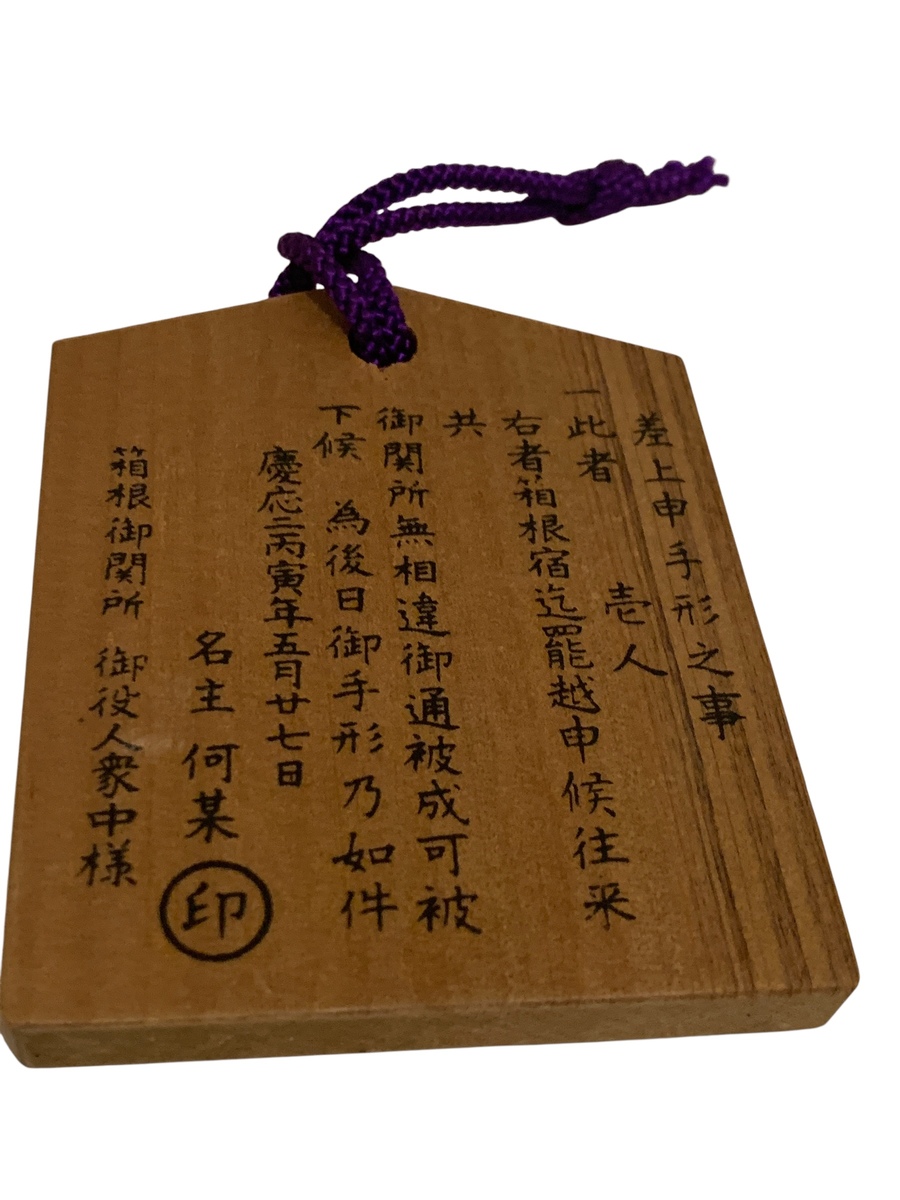 差上申手形之事
一此者 壱人
右者箱根宿迄罷越申候往来
共
御関所無相違御通被成可被
下候 為後日御手形乃如件
慶応二丙寅年五月廿七日
名主 何某 印
箱根御関所 御役人衆中様